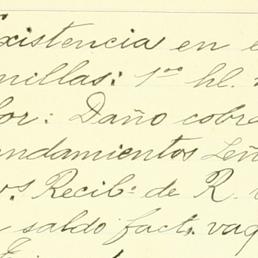 Existencia en e
millas: 1ᵒᵒ hl.
lor: Daño cobra
undamientos Leñ
os. Recibº de R.
saldo fact. vaq